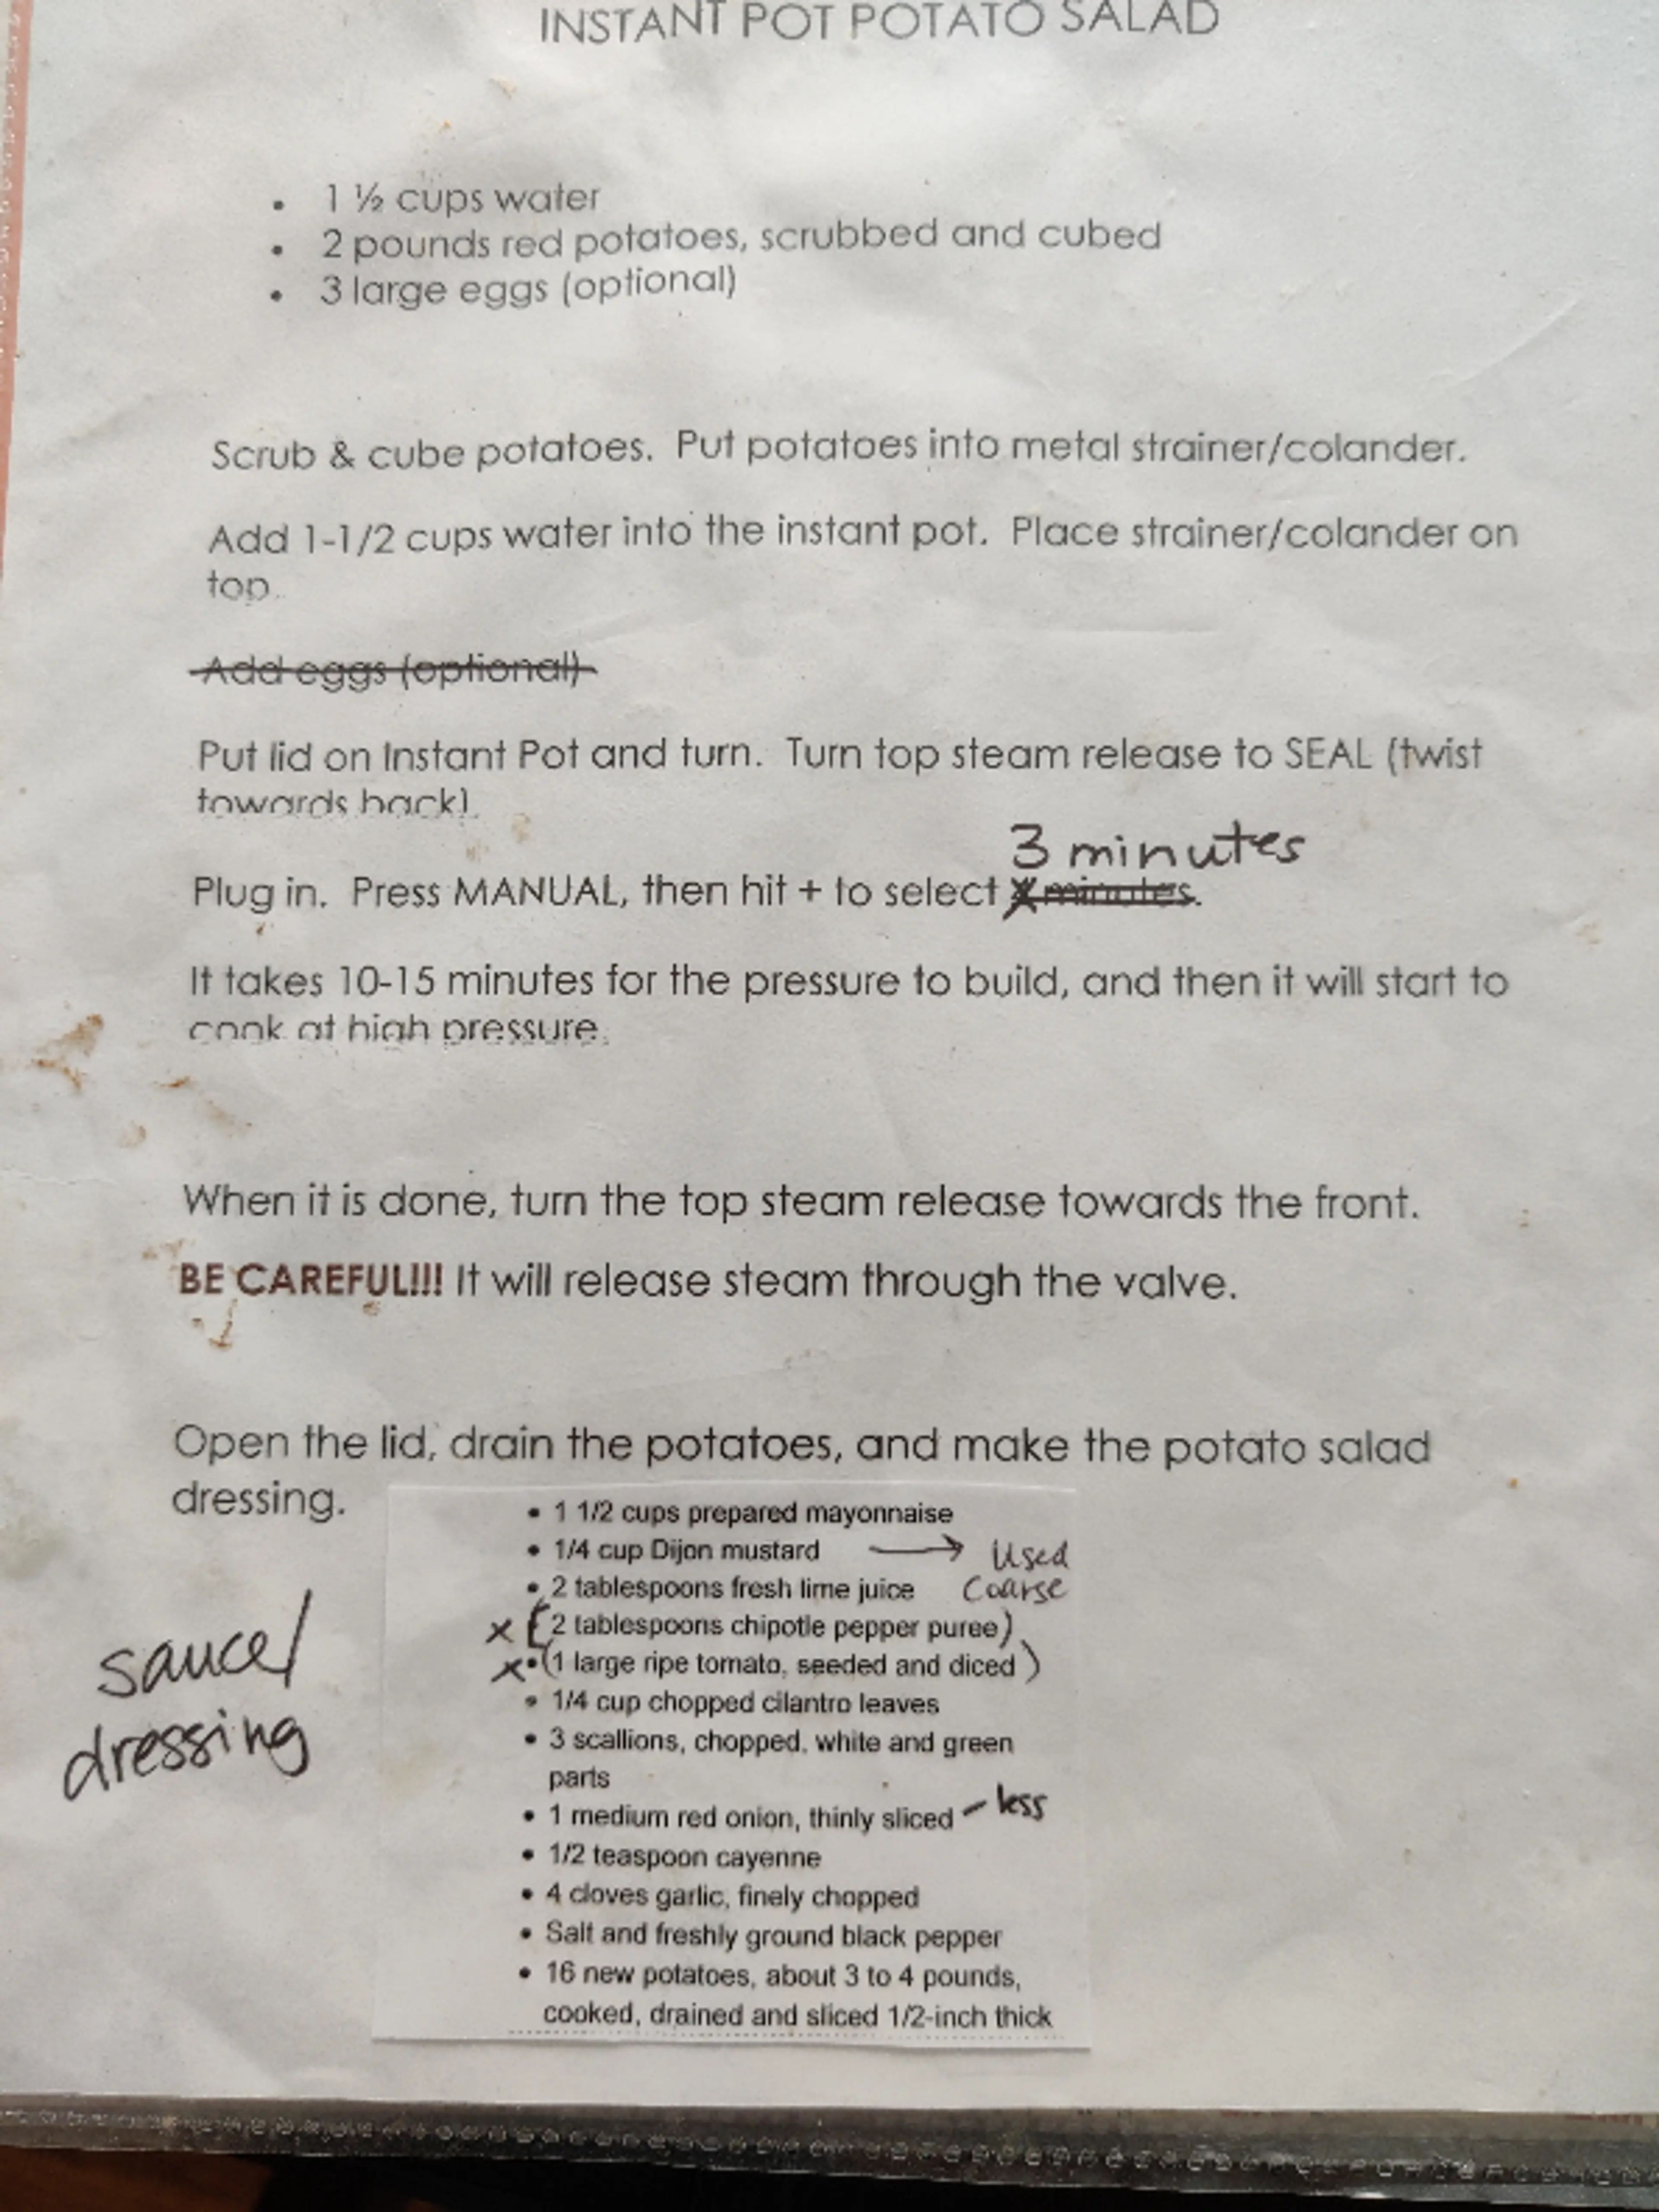 INSTANT POT POTATO SALAD
• 1 ½ cups water
• 2 pounds red potatoes, scrubbed and cubed
• 3 large eggs (optional)
Scrub & cube potatoes. Put potatoes into metal strainer/colander.
Add 1-1/2 cups water into the instant pot. Place strainer/colander on
top.
Add eggs (optional)
Put lid on Instant Pot and turn. Turn top steam release to SEAL (twist
towards back).
3 minutes
Plug in. Press MANUAL, then hit + to select minutes.
It takes 10-15 minutes for the pressure to build, and then it will start to
cook at high pressure.
When it is done, turn the top steam release towards the front.
BE CAREFUL!!! It will release steam through the valve.
Open the lid, drain the potatoes, and make the potato salad
dressing.
sauce/
dressing
• 1 1/2 cups prepared mayonnaise
• 1/4 cup Dijon mustard → Used
• 2 tablespoons fresh lime juice Coarse
x (2 tablespoons chipotle pepper puree)
x • (1 large ripe tomato, seeded and diced)
• 1/4 cup chopped cilantro leaves
• 3 scallions, chopped, white and green
parts
• 1 medium red onion, thinly sliced – less
• 1/2 teaspoon cayenne
• 4 cloves garlic, finely chopped
• Salt and freshly ground black pepper
• 16 new potatoes, about 3 to 4 pounds,
cooked, drained and sliced 1/2-inch thick